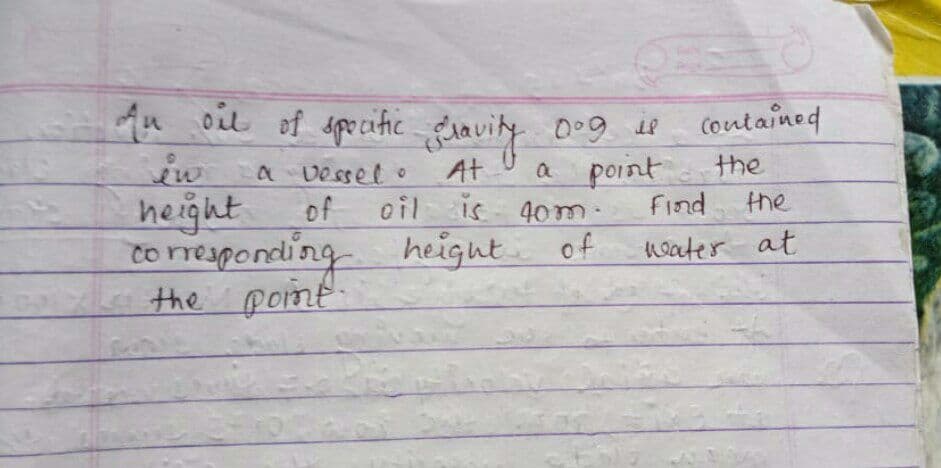 An oil of specific gravity 0.9 is contained
in a vessel. At a point the
height of oil is 40m. Find the
corresponding height of water at
the point.